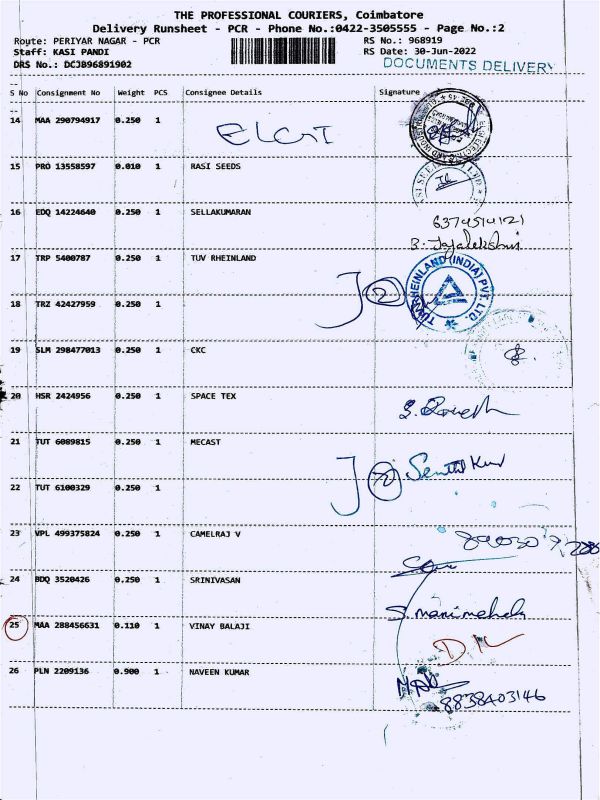 THE PROFESSIONAL COURIERS, Coimbatore
Delivery Runsheet - PCR - Phone No.:0422-3505555 - Page No.:2
Route: PERIYAR NAGAR - PCR RS No.: 968919
Staff: KASI PANDI RS Date: 30-Jun-2022
DRS No.: DCJB96891902 DOCUMENTS DELIVERY
S No Consignment No Weight PCS Consignee Details Signature
14 MAA 290794917 0.250 1 ELGT
15 PRO 13558597 0.010 1 RASI SEEDS
16 EDQ 14224640 0.250 1 SELLAKUMARAN
6374514121
17 TRP 5400787 0.250 1 TUV RHEINLAND
TUV RHEINLAND (INDIA) PVT. LTD
18 TRZ 42427959 0.250 1
19 SLM 298477013 0.250 1 CKC
20 HSR 2424956 0.250 1 SPACE TEX
21 TUT 6089815 0.250 1 MECAST
22 TUT 6100329 0.250 1
23 VPL 499375824 0.250 1 CAMELRAJ V
24 BDQ 3520426 0.250 1 SRINIVASAN
S. manimehala
25 MAA 288456631 0.110 1 VINAY BALAJI
26 PLN 2209136 0.900 1 NAVEEN KUMAR
8838403146